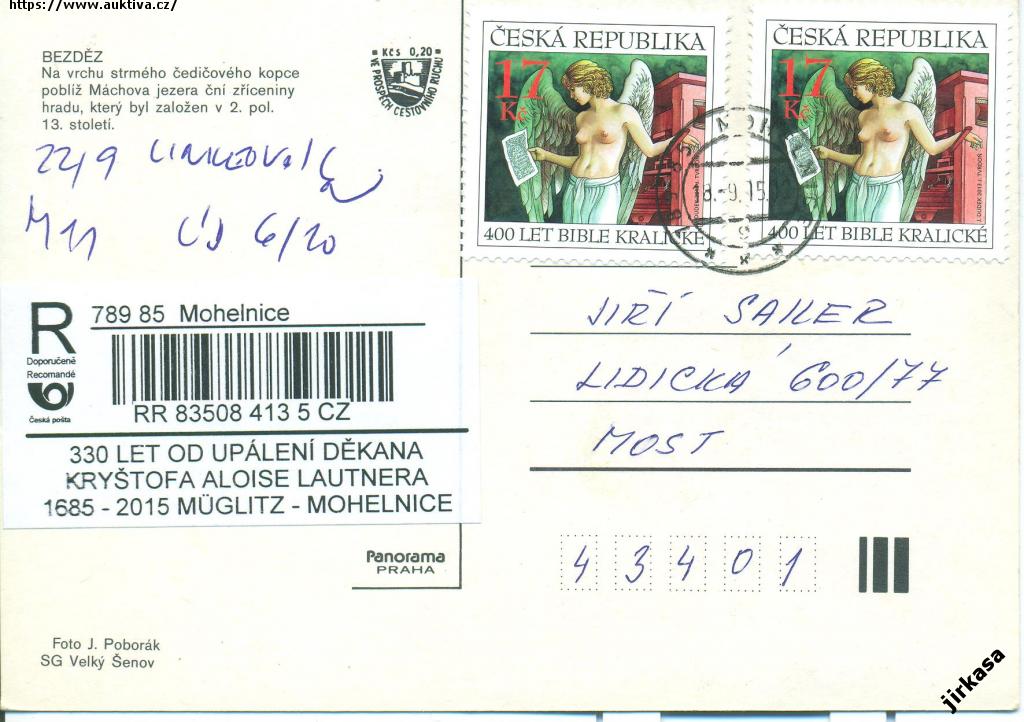 https://www.auktiva.cz/
BEZDĚZ
Na vrchu strmého čedičového kopce
poblíž Máchova jezera ční zříceniny
hradu, který byl založen v 2. pol.
13. století.
Kčs 0,20
VE PROSPĚCH CESTOVNÍHO RUCHU
22/9
M11 ČJ 6/20
ČESKÁ REPUBLIKA
17 Kč
400 LET BIBLE KRALICKÉ
ČESKÁ REPUBLIKA
17 Kč
J. DUDEK 2013 J. TVRDOŇ
400 LET BIBLE KRALICKÉ
8.-9.15
R
Doporučeně
Recomandé
Česká pošta
789 85 Mohelnice
RR 83508 413 5 CZ
330 LET OD UPÁLENÍ DĚKANA
KRYŠTOFA ALOISE LAUTNERA
1685 - 2015 MÜGLITZ - MOHELNICE
JIŘÍ SAILER
LIDICKÁ 600/77
MOST
43401
Panorama
PRAHA
Foto J. Poborák
SG Velký Šenov
jirkasa